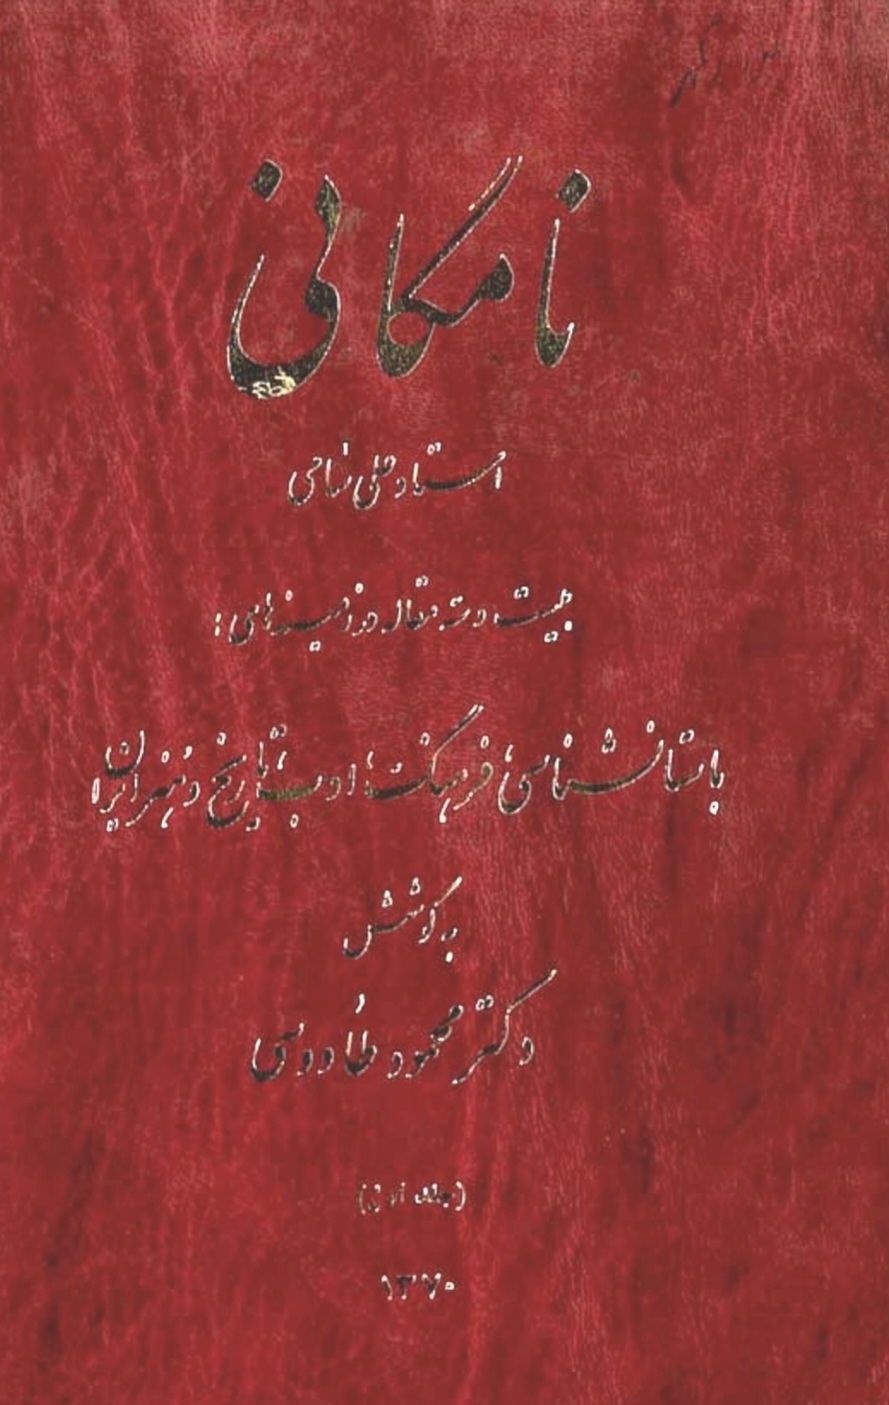 نامگانی
استاد علی سامی
بیست و سه مقاله در زمینه‌های:
باستانشناسی، فرهنگ، ادب، تاریخ و هنر ایران
به کوشش
دکتر محمود طاووسی
(جلد اول)
۱۳۷۰